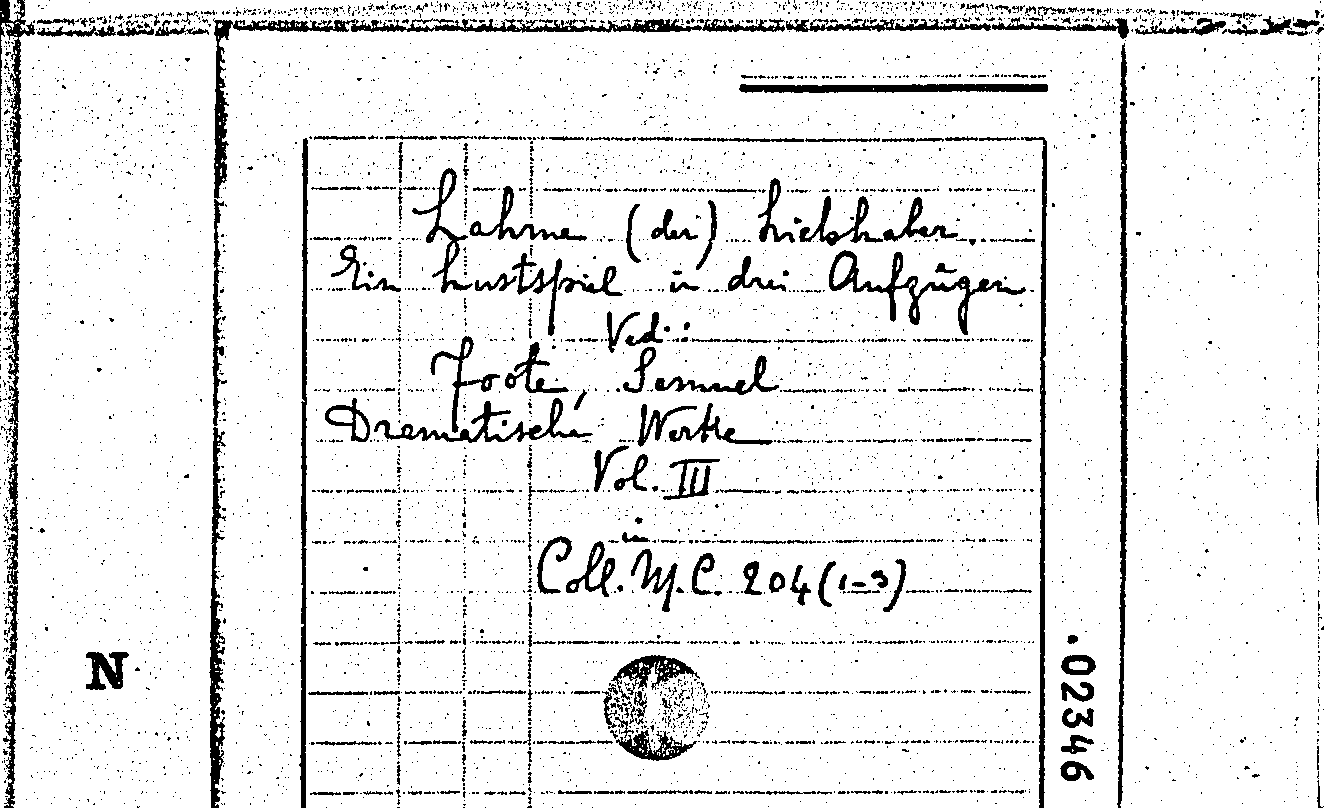 Lahme (der) Liebhaber.
Ein Lustspiel in drei Aufzügen
Vedi:
Foote, Samuel
Dramatische Werke
Vol. III
in
Coll. M. C. 204 (1-3)
N
.02346